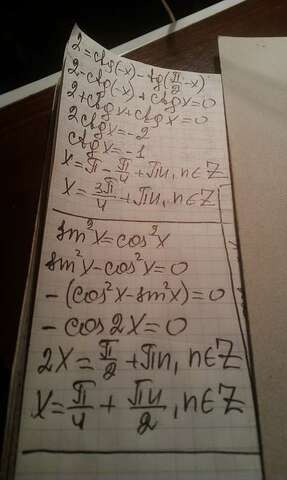 2 = ctg(-x) - tg(π/2 - x)
2 - ctg(-x) + ctgx = 0
2 + ctgx + ctgx = 0
2ctgx = -2
ctgx = -1
x = π - π/4 + πn, n∈Z
x = 3π/4 + πn, n∈Z
sin²x = cos²x
sin²x - cos²x = 0
- (cos²x - sin²x) = 0
- cos2x = 0
2x = π/2 + πn, n∈Z
x = π/4 + πn/2, n∈Z